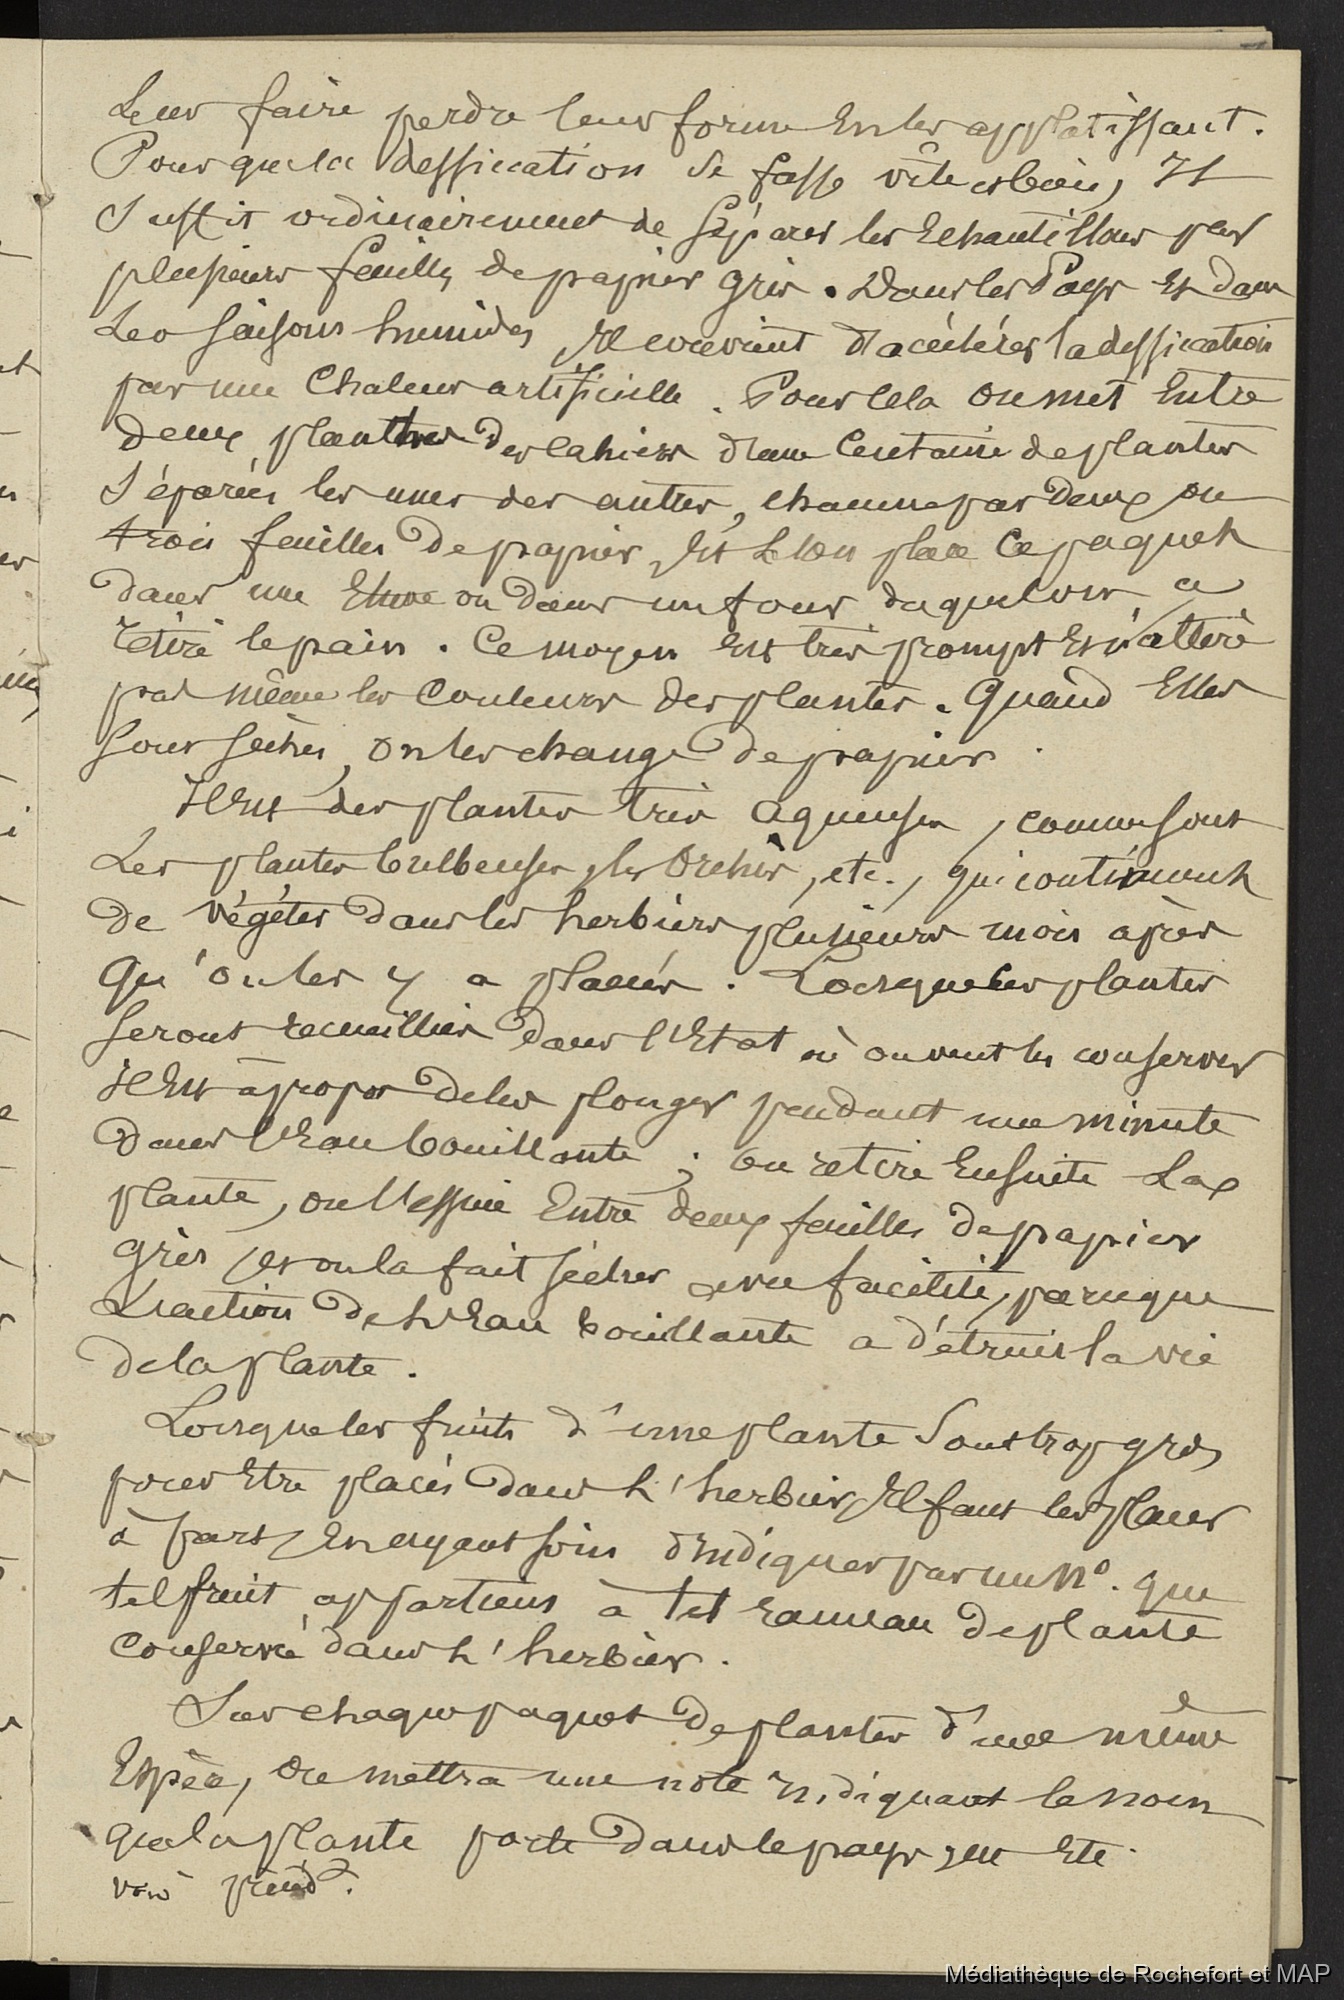 Leur faire perdre leur forme En les applatissant.
Pour que la dessiccation se fasse vite et bien, Il
Suffit ordinairement de séparer les Echantillons par
plusieurs feuilles de papier gris. Dans les Pays Et dans
Les saisons humides, Il convient d'accélérer la dessiccation
par une Chaleur artificielle. Pour Cela On met Entre
deux planches des Cahiers d'une Centaine de plantes
Séparées les unes des autres, chacune par Deux ou
trois feuilles De papier, Et L'on place Ce paquet
dans une Etuve ou Dans un four duquel on a
retiré le pain. Ce moyen Est très prompt Et n'altère
pas même les Couleurs des plantes. Quand Elles
sont sèches, On les change De papier.
Il Est des plantes très aqueuses, comme sont
Les plantes bulbeuses, les Orchis, etc., qui continuent
De végéter Dans les herbiers plusieurs mois après
qu'on les y a placées. Lorsque les plantes
seront recueillies Dans l'Etat où on veut les conserver
il Est à propos De les plonger pendant une minute
Dans l'Eau bouillante; on retire Ensuite La
plante, on l'essuie Entre deux feuilles De papier
gris, et on la fait sécher avec facilité, parceque
L'action De L'Eau bouillante a détruit la vie
De la plante.
Lorsque les fruits d'une plante Sont trop gros
pour Etre placés Dans L'herbier, Il faut les placer
à part, En ayant soin d'Indiquer par un No. que
tel fruit appartient à tel rameau De plante
Conservé dans L'herbier.
Sur chaque paquet De plantes d'une même
Espèce, On mettra une note Indiquant le nom
que la plante porte Dans le pays, Etc